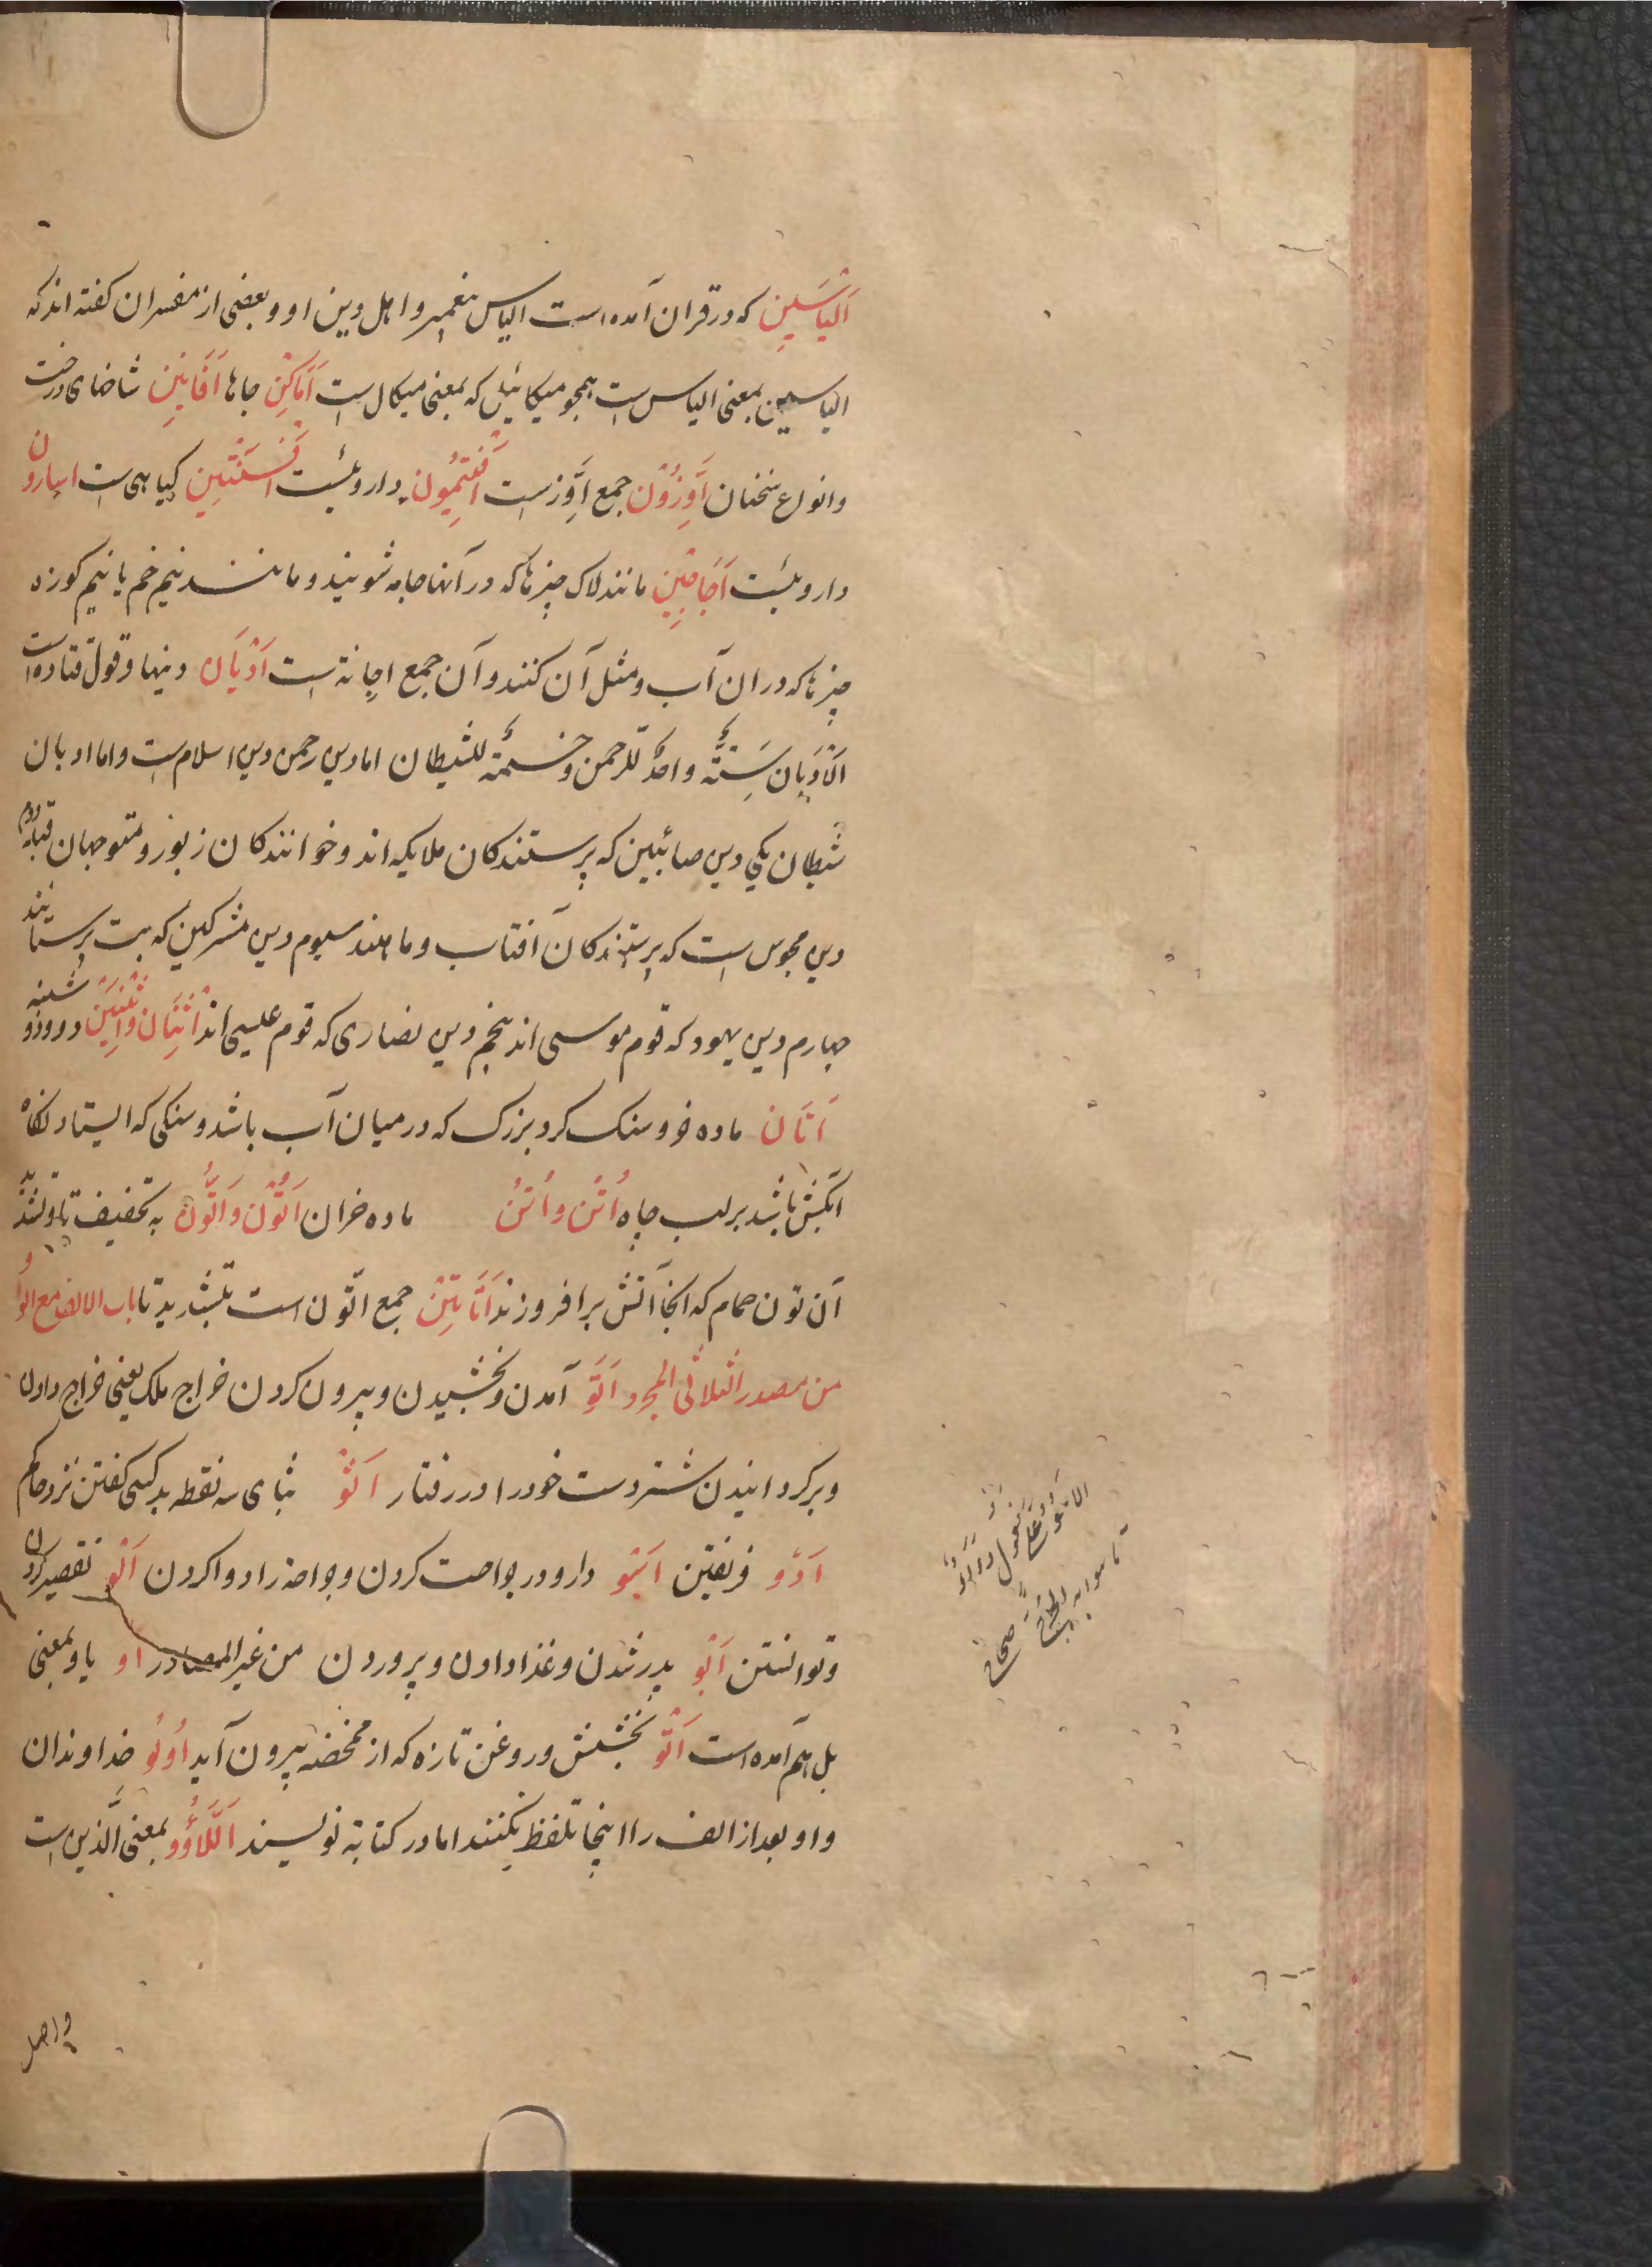 اَلیَاسِین که در قران آمده است الیاس پیغمبر و اهل دین او و بعضی از مفسران کفته اند که
الیاسین بمعنی الیاس است همچو میکائیل که بمعنی میکال است اَمَاکِن جاها اَفَانِین شاخهای درخت
و انواع سخنان اِوَزُّوْن جمع اِوَزّ است اَفْتِیمُون داروئیست اَفْسَنْتِین کیاهی است اسارون
داروئیست اَجَاجِین مانند لاک چیزها که در آنها جامه شویند و مانند نیم خم یا نیم کوزه
چیزها که دران آب و مثل آن کنند و آن جمع اجانة است اَدْیَان دینها و قول قتاده است
اَلْاَدْیَان سِتَّةٌ واحدٌ للرحمن و خمسةٌ للشیطان اما دین رحمن دین اسلام است و اما ادیان
شیطان یکی دین صابئین که پرستندکان ملایکه اند و خوانندکان زبور و متوجهان قبله دوم
دین مجوس است که پرستندکان آفتاب و ماهند سیوم دین مشرکین که بت پرستانند
چهارم دین یهود که قوم موسی اند پنجم دین نصاری که قوم عیسی اند اِثْنَان وَاِثْنَیْن دو و روز دو شنبه
اَتَان ماده خر و سنک کرد بزرک که در میان آب باشد و سنکی که ایستادنکاه
آبکش باشد بر لب چاه اُتْن و اُتُن ماده خران اَتُوْن وَ اَتُّوْن به تخفیف تا و تشدید
آن تون حمام که انجا آتش برافروزند اَتَاتِیْن جمع اتّون است بتشدید تا باب الالف مع الواو
من مصدر الثلاثی المجرد اَتْو آمدن و بخشیدن و بیرون کردن خراج ملک یعنی خراج دادن
و برکردانیدن شتر دست خود را در رفتار اَثْو بثای سه نقطه بد کسی کفتن نزد حاکم
اَدْو فریفتن اَسْو دارو در جراحت کردن و جراحت را دوا کردن اَلْو تقصیر کردن
و توانستن اَبْو پدر شدن و غذا دادن و پروردن من غیر المصادر او یا و بمعنی
بل هم آمده است اَتْو بخشش و روغن تازه که از ممخضه بیرون آید اُولُو خداوندان
واو بعد از الف را اینجا تلفظ نکنند اما در کتابة نویسند اَللَّاؤُو بمعنی الَّذین است
واصل